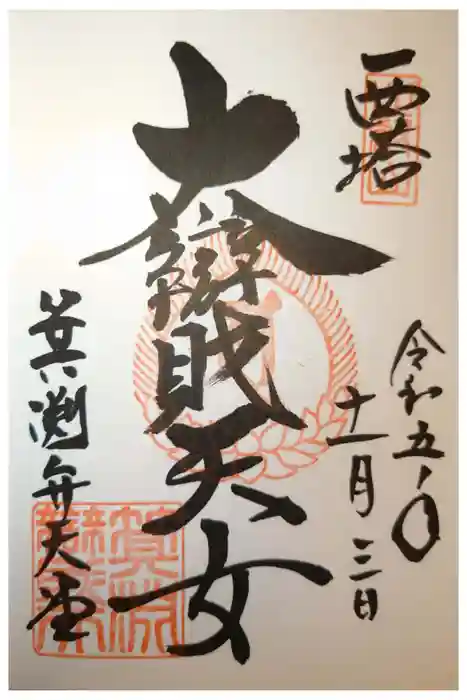 西塔
令和五年
十一月三日
大辯財天女
箕淵弁天堂